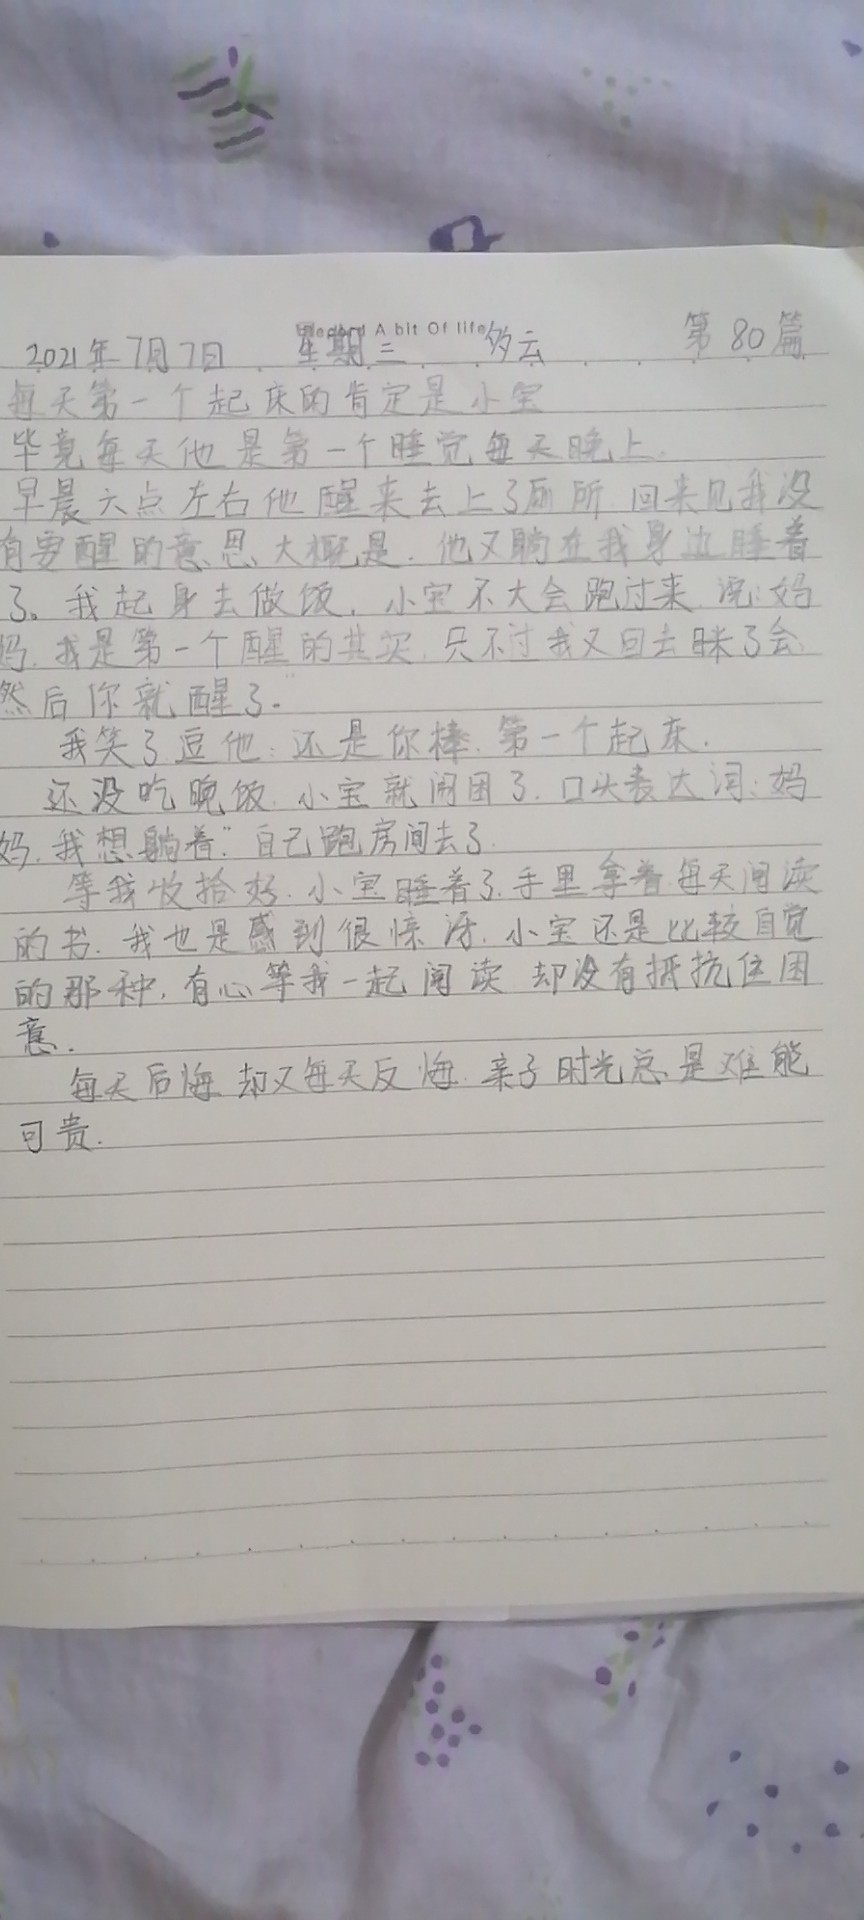 Record A bit Of life
2021年7月7日 星期三 多云 第80篇
每天第一个起床的肯定是小宝
毕竟每天他是第一个睡觉每天晚上.
早晨六点左右他醒来去上了厕所 回来见我没
有要醒的意思、大概是. 他又躺在我身边睡着
了。我起身去做饭. 小宝不大会跑过来 说:妈
妈. 我是第一个醒的其实. 只不过我又回去眯了会.
然后你就醒了."
我笑了逗他: 还是你棒. 第一个起床.
还没吃晚饭. 小宝就闹困了. 口头表达词: 妈
妈. 我想躺着." 自己跑房间去了.
等我收拾好. 小宝睡着了. 手里拿着每天阅读
的书. 我也是感到很惊讶. 小宝还是比较自觉
的那种. 有心等我一起阅读 却没有抵抗住困
意.
每天后悔 却又每天反悔. 亲子时光总是难能
可贵.